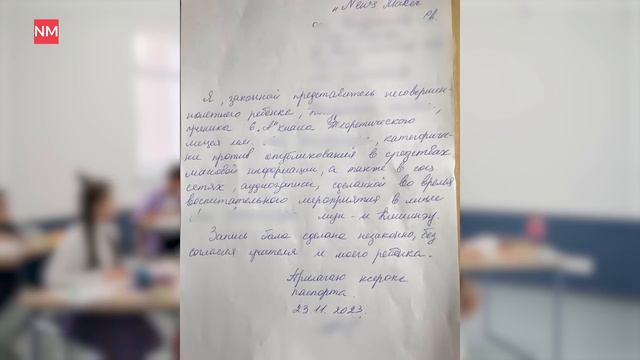 NM
„News Maker"
Я, законной представитель несовершен-
нолетнего ребёнка,
ученика 6 „А" класса Теоретического
лицея им. , категориче-
ски против опубликований в средствах
массовой информации, а также в соц.
сетях, аудиозаписи, сделанной во время
воспитательного мероприятия в лицее
мун-и Кишинэу.
Запись была сделана незаконно, без
согласия учителя и моего ребёнка.
Прилагаю ксерокс
паспорта.
23.11.2023.